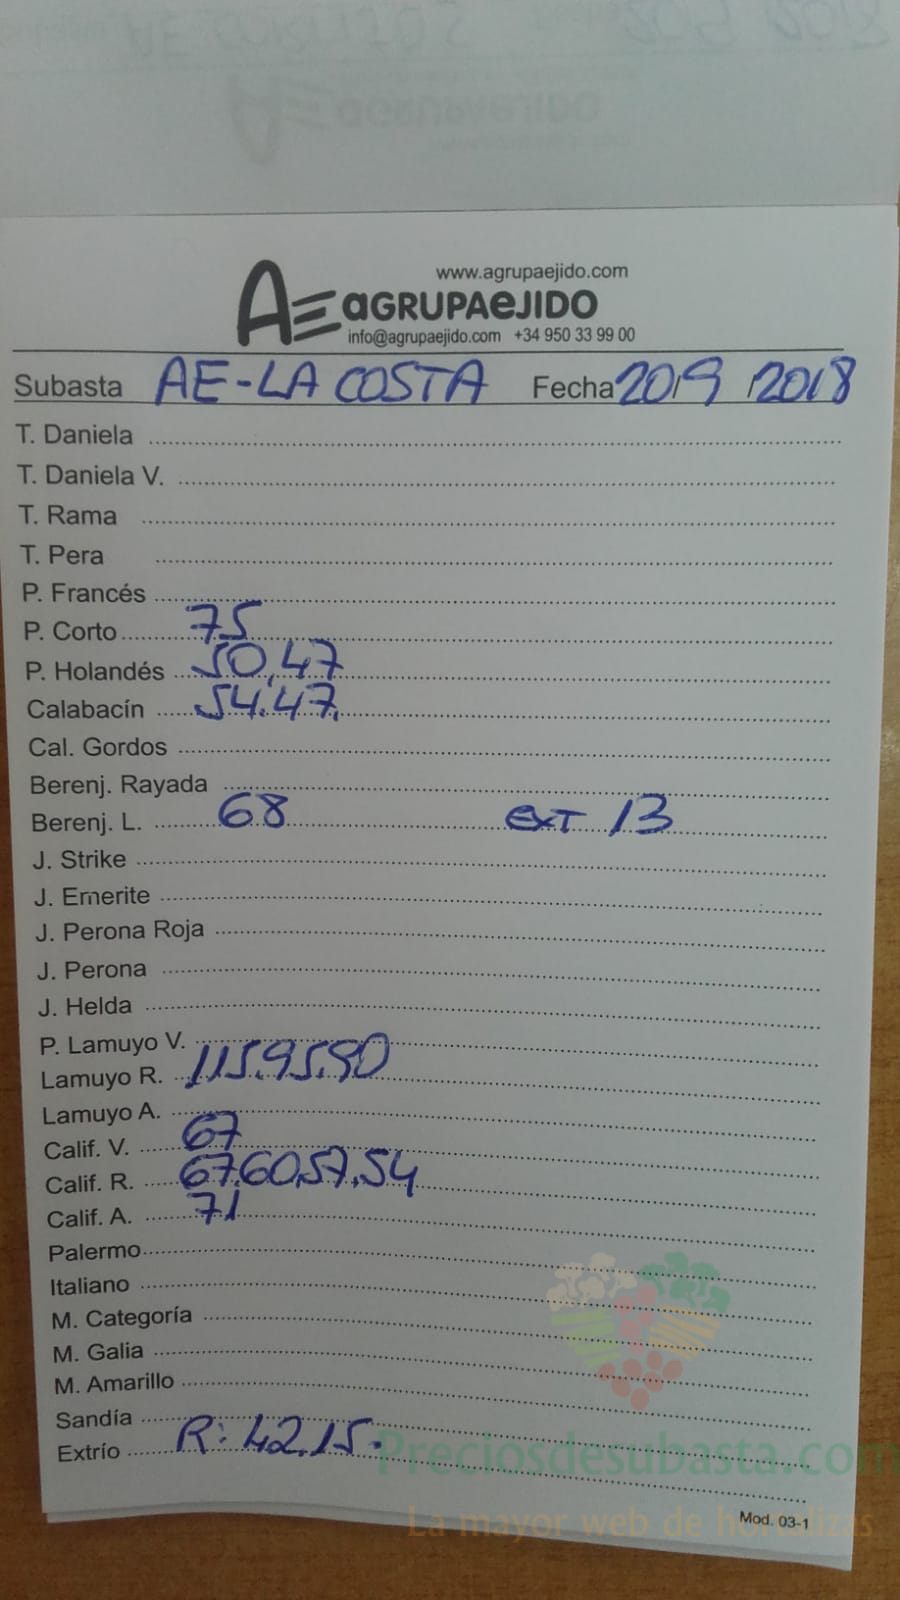 www.agrupaejido.com
AE aGRUPAeJIDO
info@agrupaejido.com +34 950 33 99 00
Subasta AE-LA COSTA Fecha 20/9/2018
T. Daniela
T. Daniela V.
T. Rama
T. Pera
P. Francés
P. Corto 75
P. Holandés 50,47
Calabacín 54.47.
Cal. Gordos
Berenj. Rayada
Berenj. L. 68 EXT 13
J. Strike
J. Emerite
J. Perona Roja
J. Perona
J. Helda
P. Lamuyo V.
Lamuyo R. 115.95.90
Lamuyo A.
Calif. V. 67
Calif. R. 67.60.57.54
Calif. A. 71
Palermo
Italiano
M. Categoría
M. Galia
M. Amarillo
Sandía
Extrío R: 42.15.
Preciosdesubasta.com
La mayor web de hortalizas
Mod. 03-1